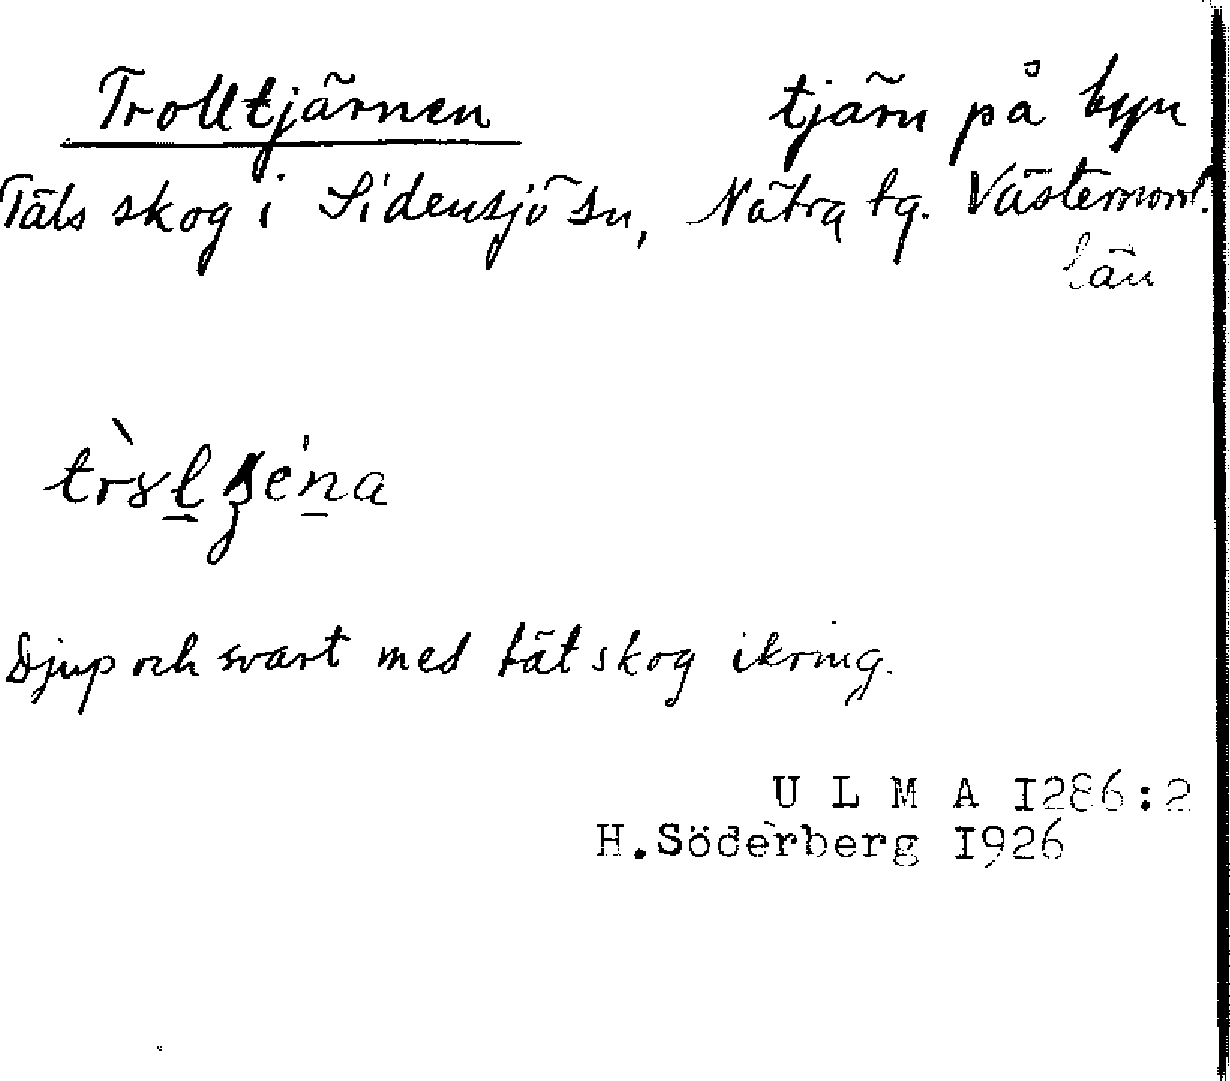 Trolltjärnen tjärn på byn
Täls skog i Sidensjö sn, Nätra tg. Västernorrl.
län
Djup och svart med tät skog ikring.
U L M A I286:2
H.Söderberg I926